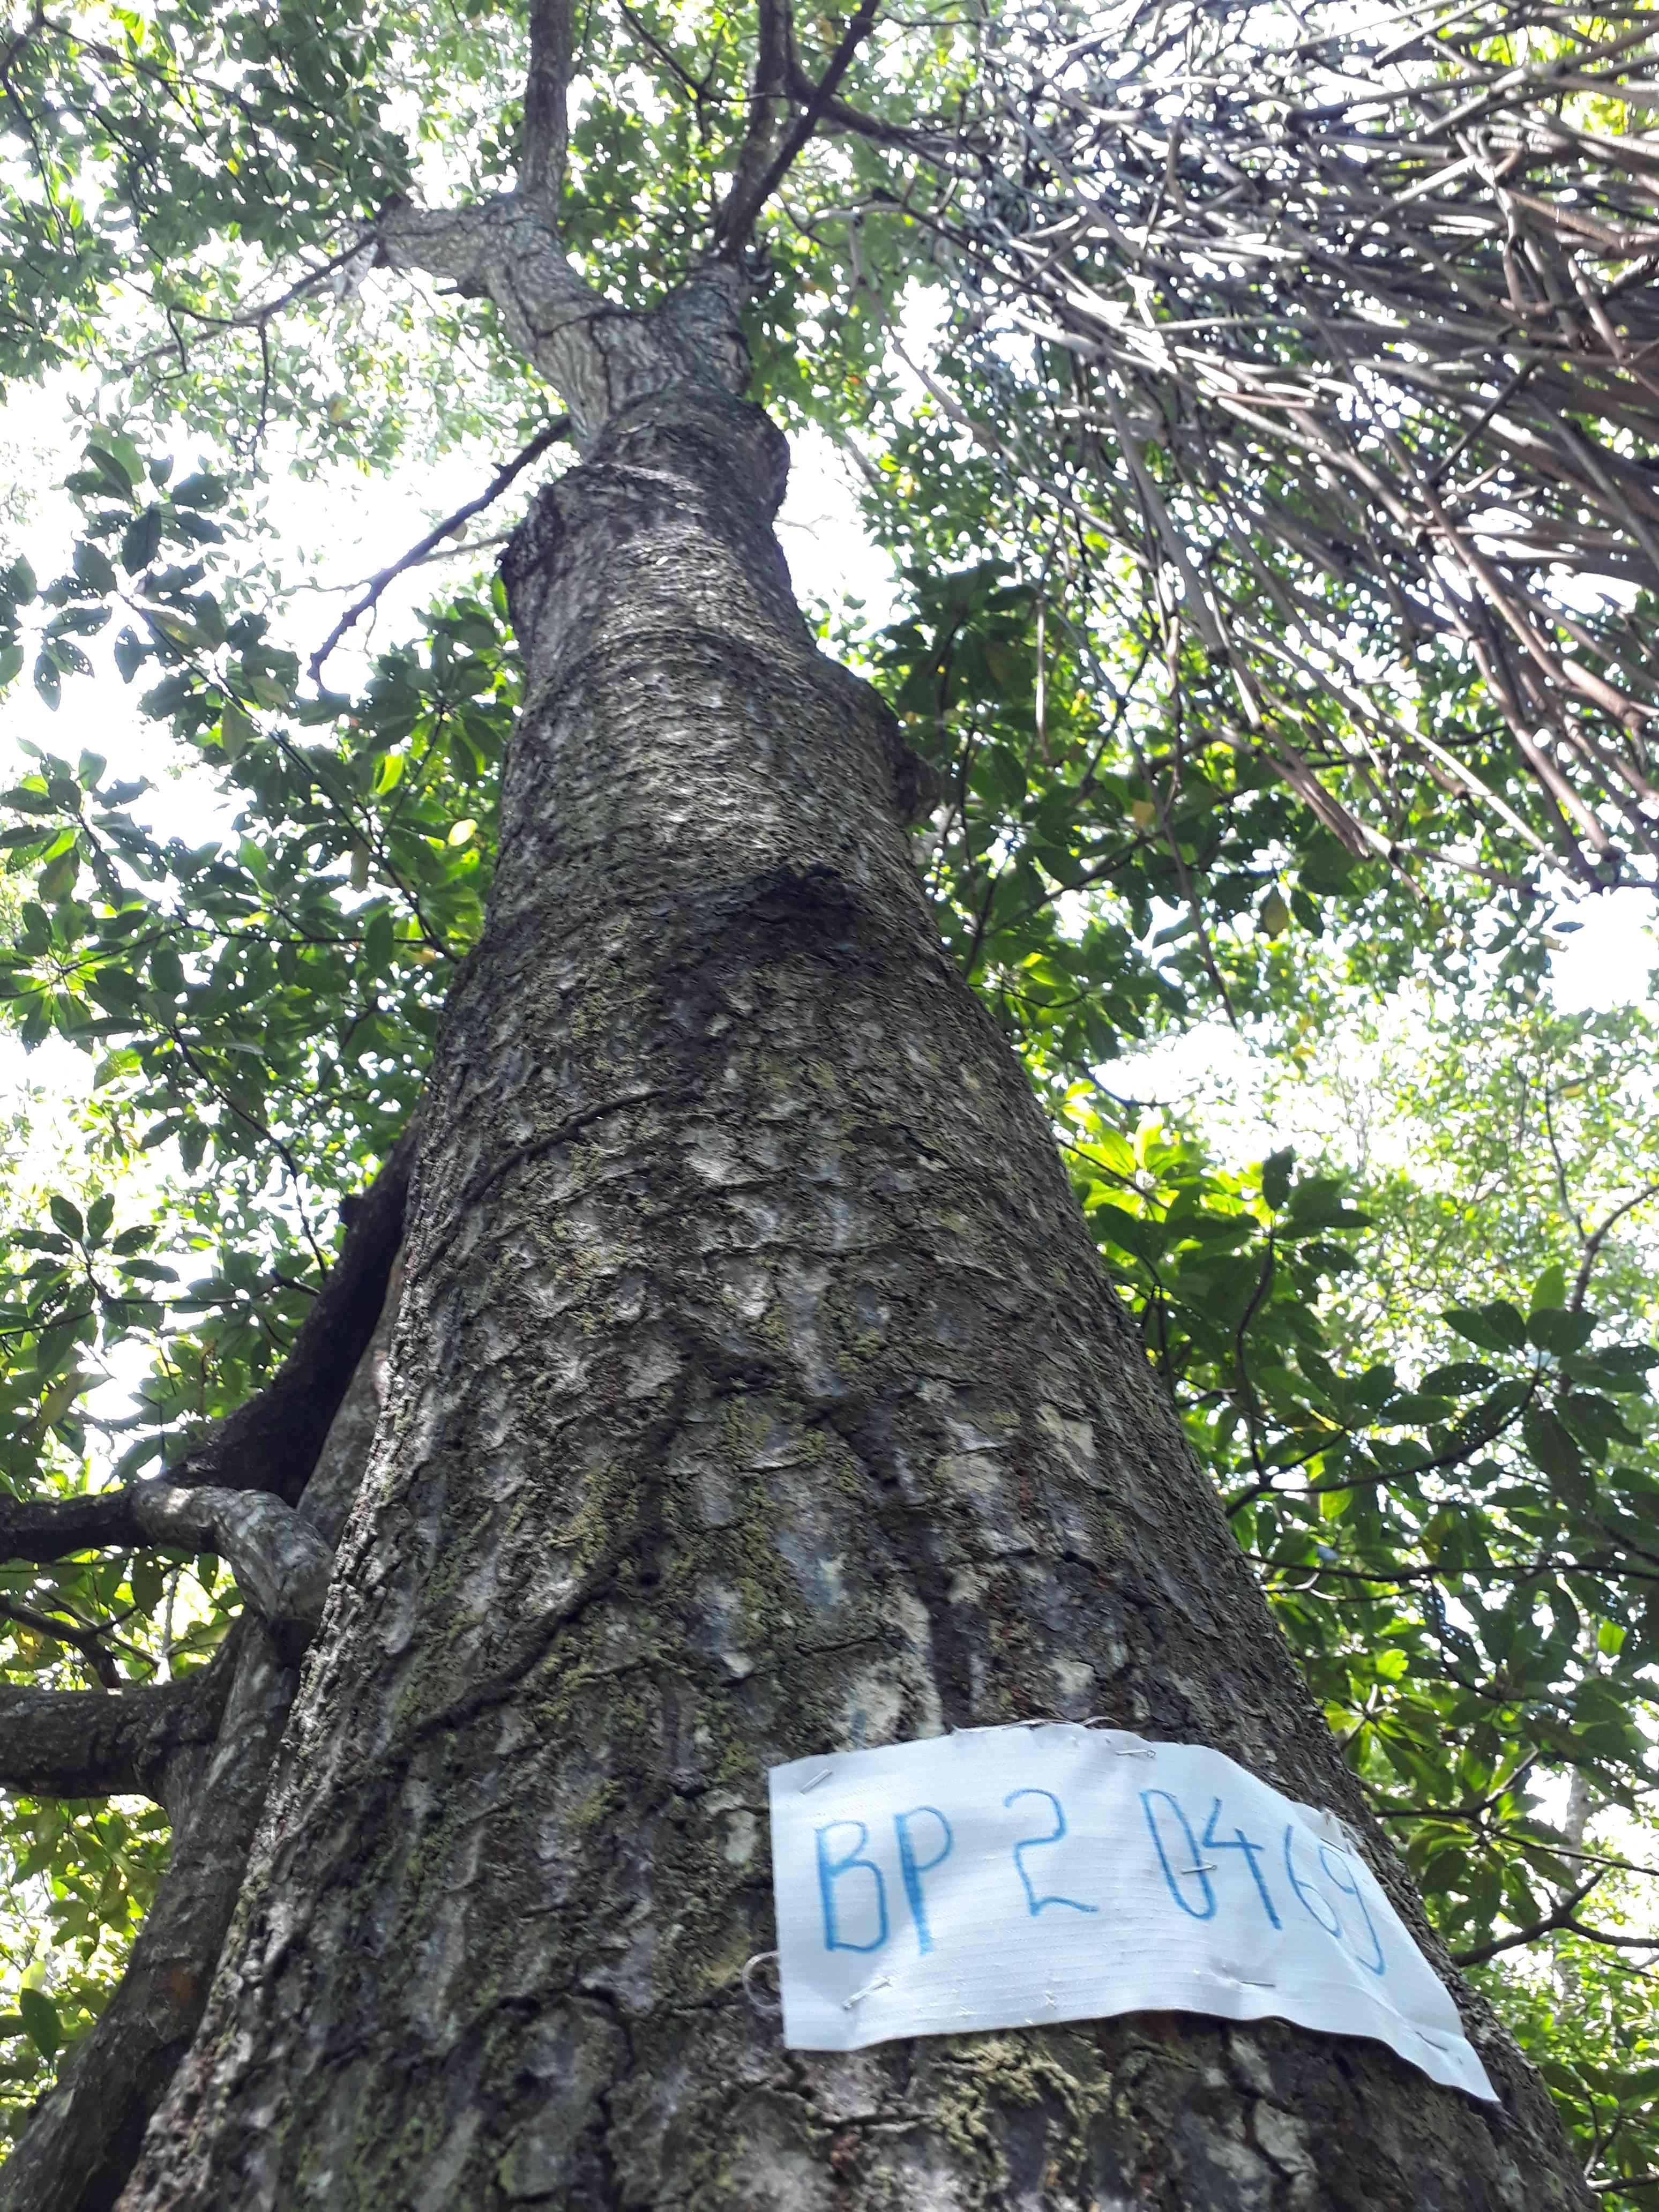 BP 2 0469